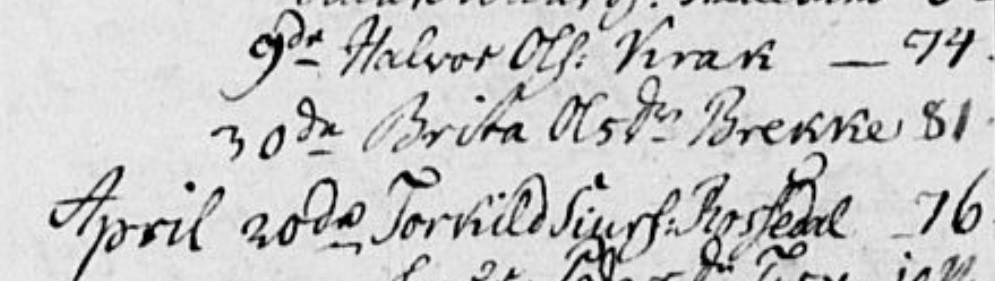 9de Halvor Ols: Krak — 74
30de Brita Olsdr Brekke 81
April 20de Torkild Siurs: Rossedal 76